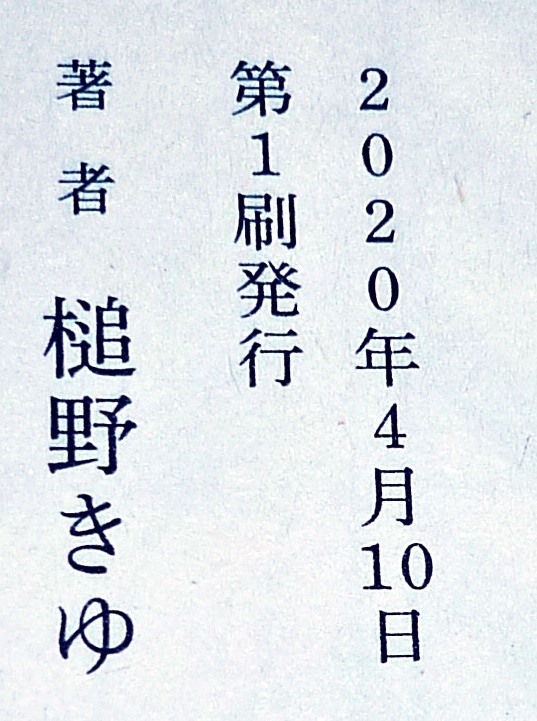 2020年4月10日
第1刷発行
著者 槌野きゆ